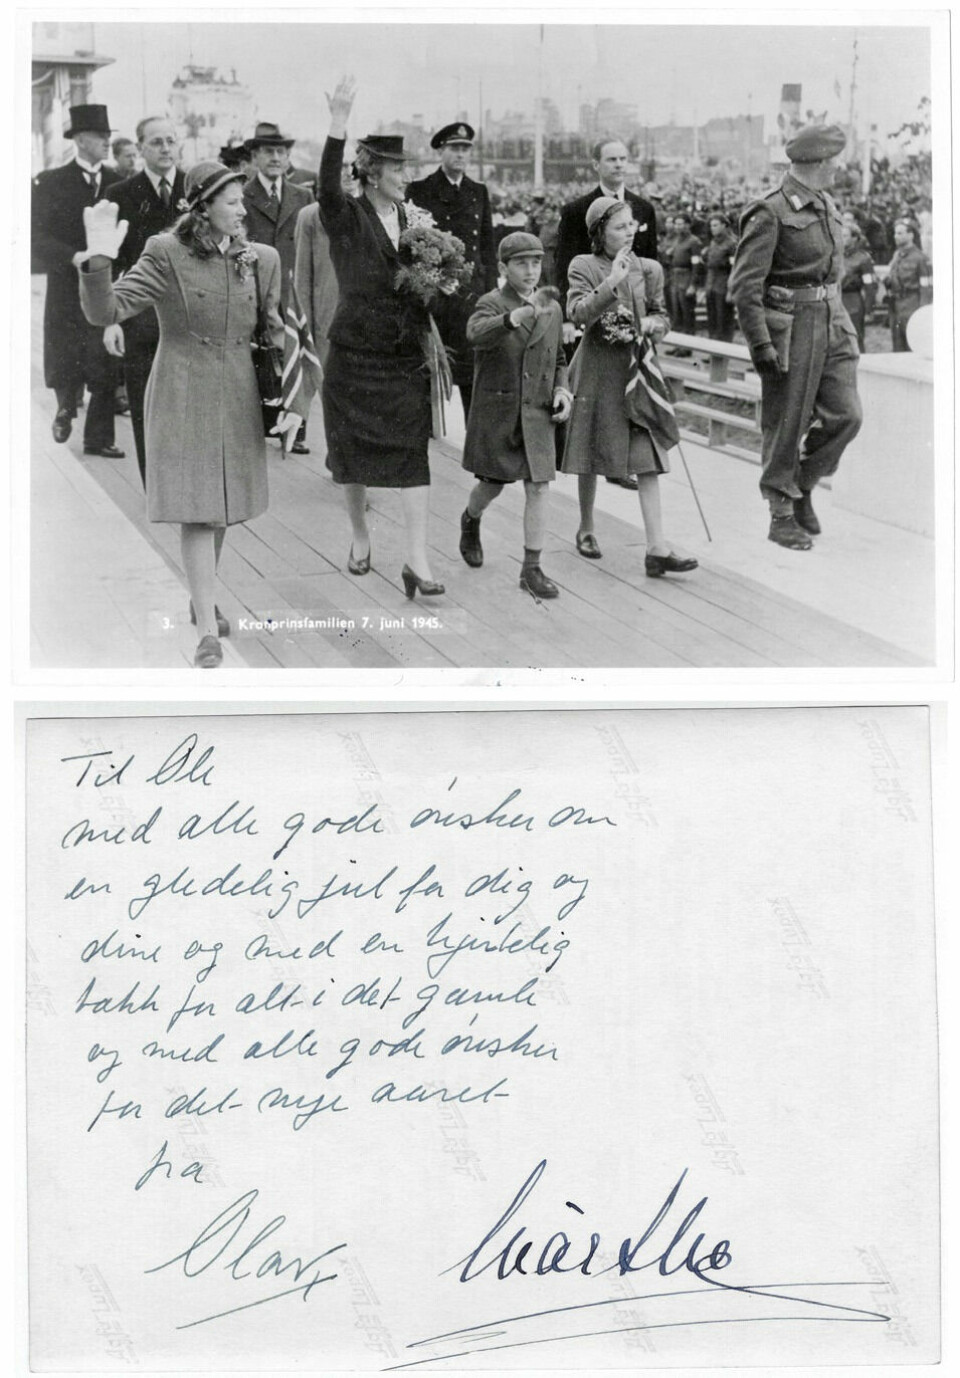 3. Kronprinsfamilien 7. juni 1945.
Til Ole
med alle gode ønsker om
en gledelig jul for dig og
dine og med en hjertelig
takk for alt i det gamle
og med alle gode ønsker
for det nye aaret
fra
Olav Märtha